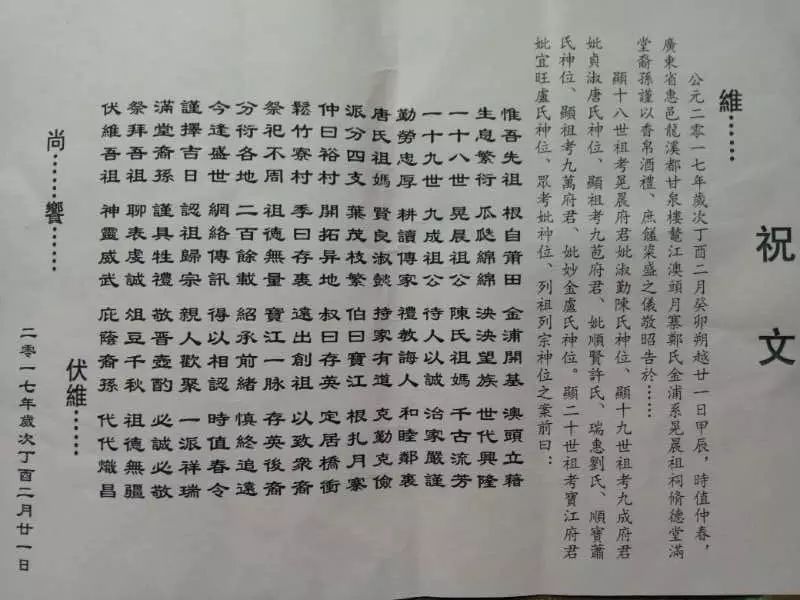 祝文
維……
公元二零一七年歲次丁酉二月癸卯朔越廿一日甲辰，時值仲春，
廣東省惠邑龍溪都甘泉樓鼇江澳頭月寨鄭氏金浦系晃晨祖祠脩德堂滿
堂裔孫謹以香帛酒禮、庶饈粢盛之儀敬昭告於……
顯十八世祖考晃晨府君妣淑勤陳氏神位、顯十九世祖考九成府君
妣貞淑唐氏神位、顯祖考九苞府君、妣順賢許氏、瑞惠劉氏、順寶蕭
氏神位、顯祖考九萬府君、妣妙金盧氏神位。顯二十世祖考寶江府君
妣宜旺盧氏神位、眾考妣神位、列祖列宗神位之案前曰：
惟吾先祖 根自莆田 金浦開基 澳頭立藉
生息繁衍 瓜瓞綿綿 泱泱望族 世代興隆
一十八世 晃晨祖公 陳氏祖媽 千古流芳
一十九世 九成祖公 待人以誠 治家嚴謹
勤勞忠厚 耕讀傳家 禮教誨人 和睦鄰裏
唐氏祖媽 賢良淑懿 持家有道 克勤克儉
派分四支 葉茂枝繁 伯曰寶江 根扎月寨
仲曰裕村 開拓异地 叔曰存英 定居橋衝
鬆竹寮村 季曰存裏 遠出創祖 以致衆裔
祭祀不周 祖德無量 寶江一脉 存英後裔
分衍各地 二百餘載 紹承前緒 慎終追遠
今逢盛世 網絡傳訊 得以相認 時值春令
謹擇吉日 認祖歸宗 親人歡聚 一派祥瑞
滿堂裔孫 謹具牲禮 敬晋壺酌 必誠必敬
祭拜吾祖 聊表虔誠 俎豆千秋 祖德無疆
伏維吾祖 神靈威武 庇蔭裔孫 代代熾昌
伏維……
尚……饗……
二零一七年歲次丁酉二月廿一日